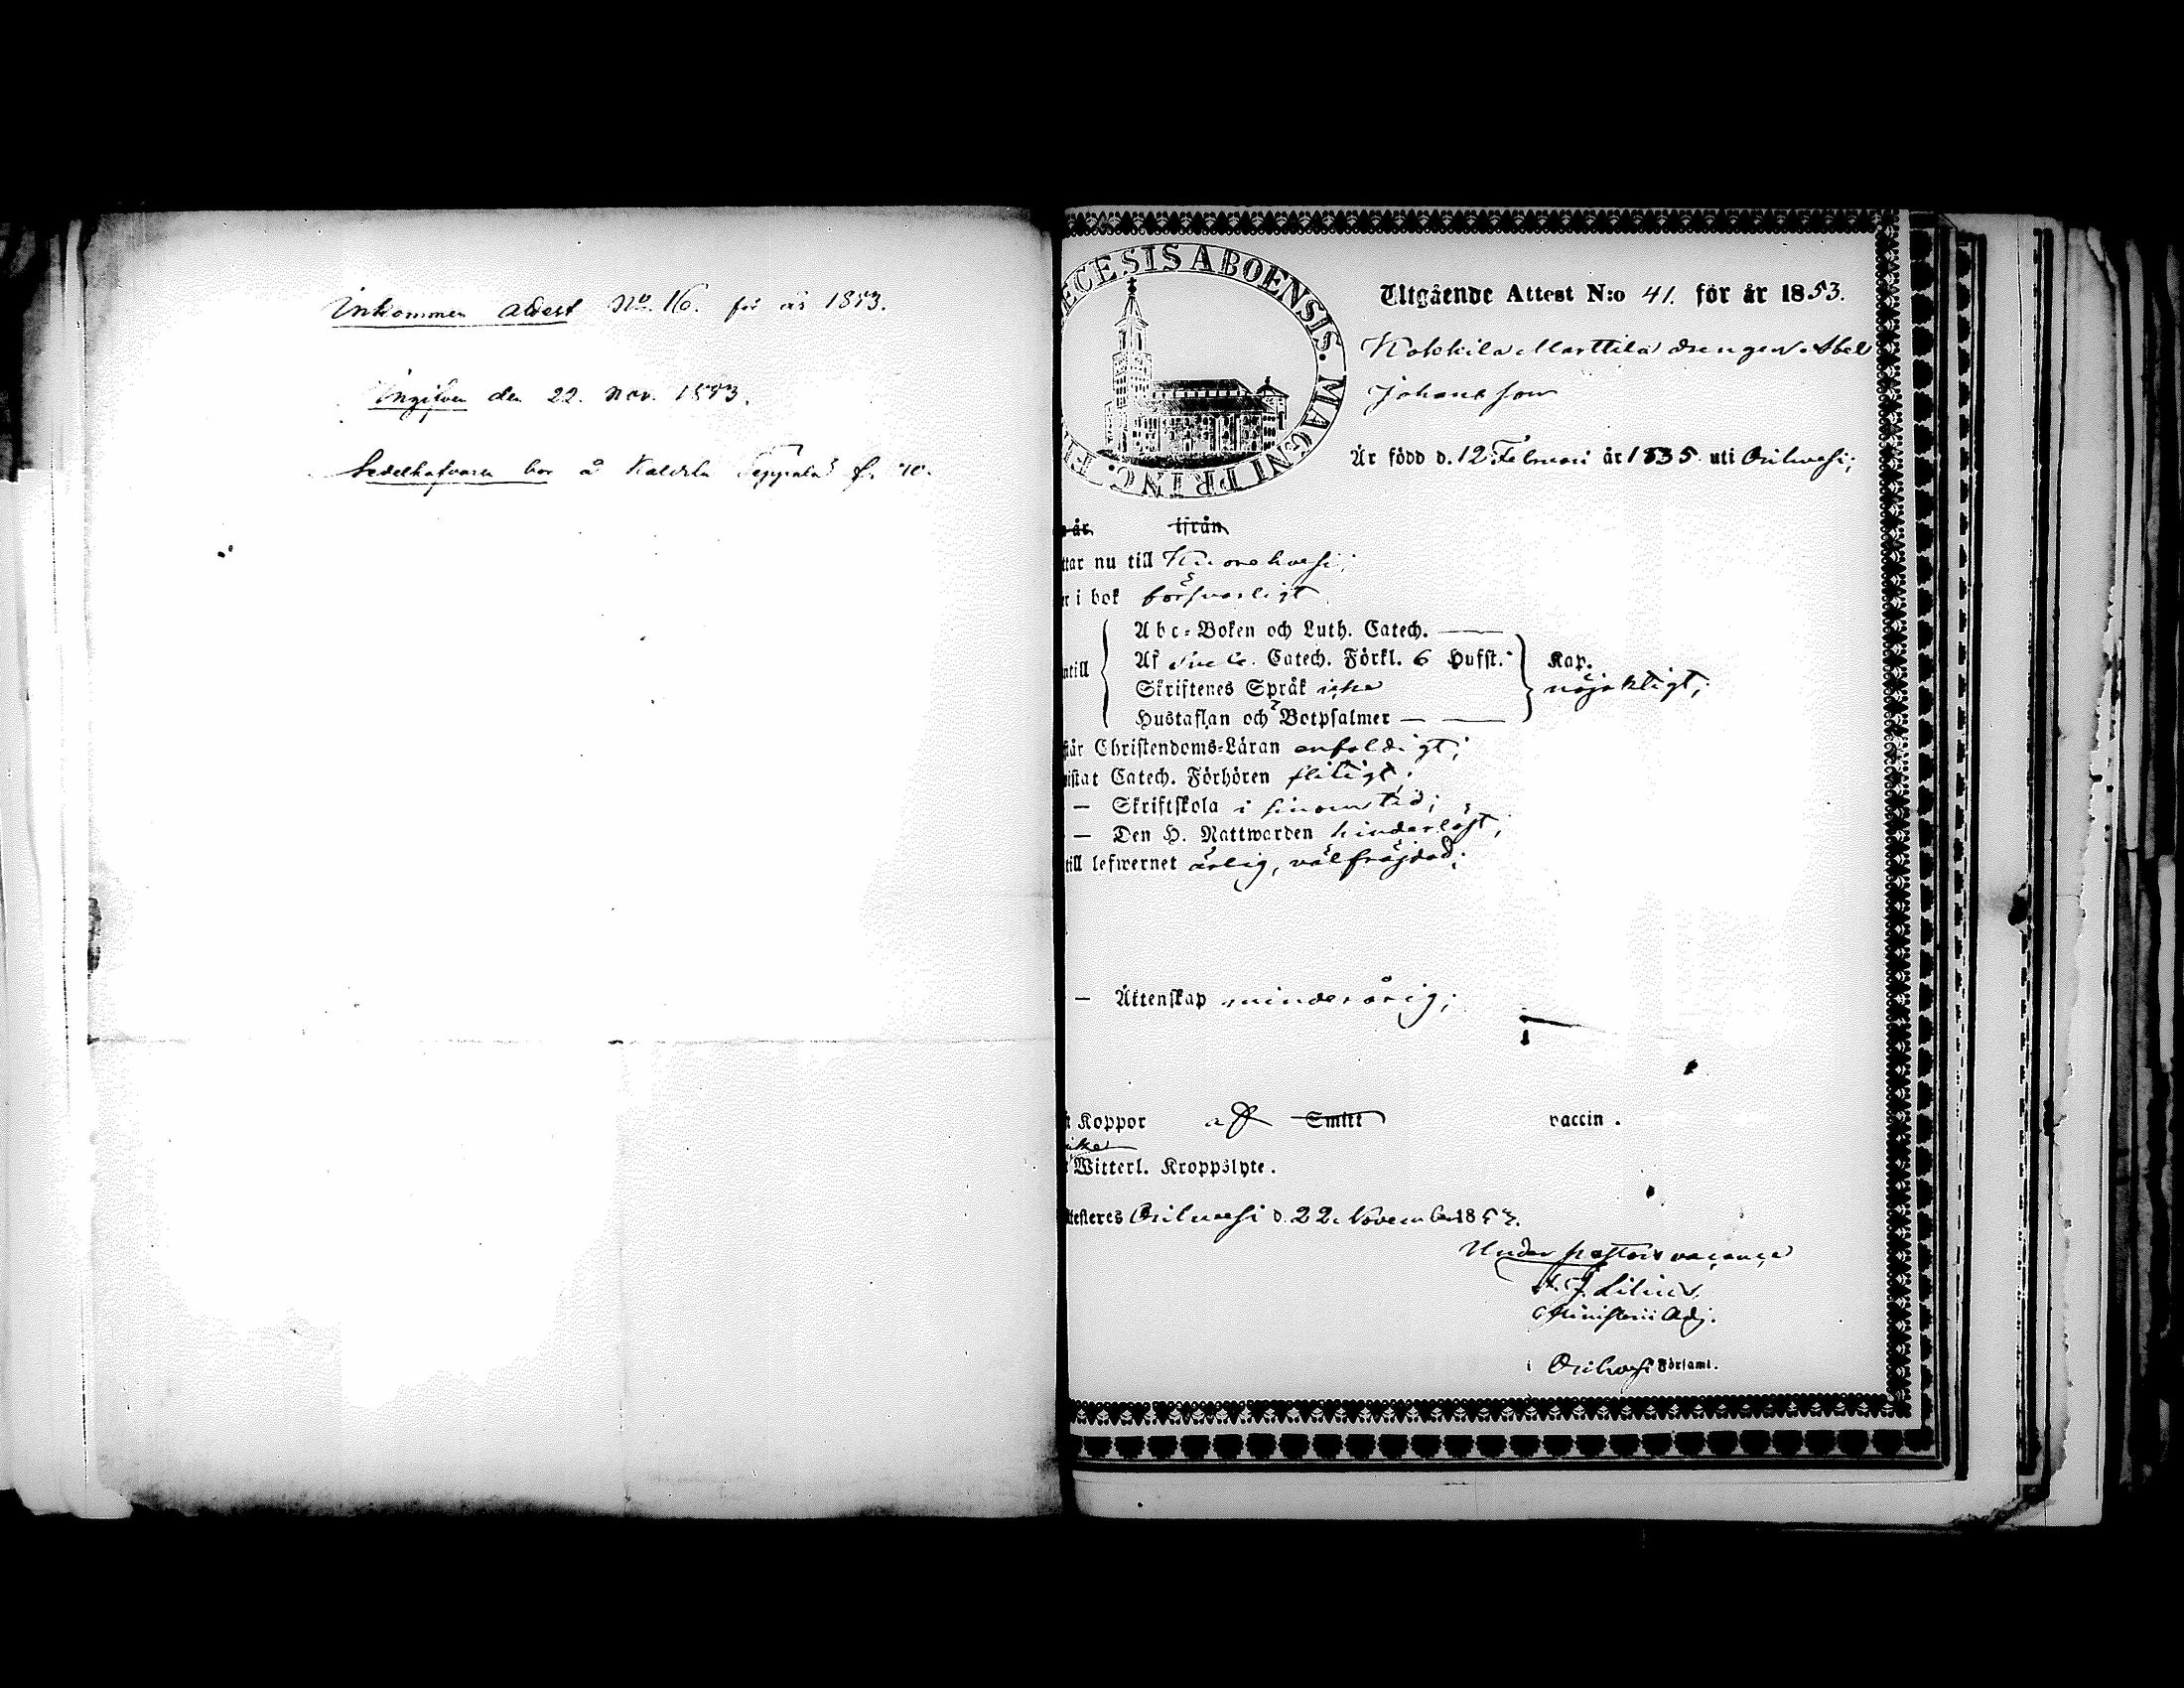 Inkommen attest No. 16. för år 1853.
Ingifven den 22. Nov. 1853.
Sedelhafvaren bor å Kaldila Seppälä f. 10.
ECESIS ABOENSIS. MAGNI PRINC. FI
Utgående Attest N:o 41. för år 1853.
Kokkila Marttila drengen Abel
Johansson
Är född d. 12 Februari år 1835 uti Orihvesi;
år ifrån
ttar nu till Kuorehvesi;
r i bok försvarligt
Abc-Boken och Luth. Catech. —
Af Sveb. Catech. Förkl. 6 Hufst. Kap.
ntill
Skriftenes Språk icke nöjaktigt;
Hustaflan och 7 Botpsalmer — —
står Christendoms-Läran enfaldigt;
wistat Catech. Förhören flitigt;
— Skriftskola i sinom tid;
— Den H. Nattwarden hinderlöst;
till lefwernet ärlig, välfräjdad;
— Äktenskap minderårig;
Koppor af Smitt vaccin.
Witterl. Kroppslyte.
Attesteres Orihvesi d. 22 November 1853.
Under pastors vacance
Lilius.
Ministerii Adj.
i Orihvesi Församl.